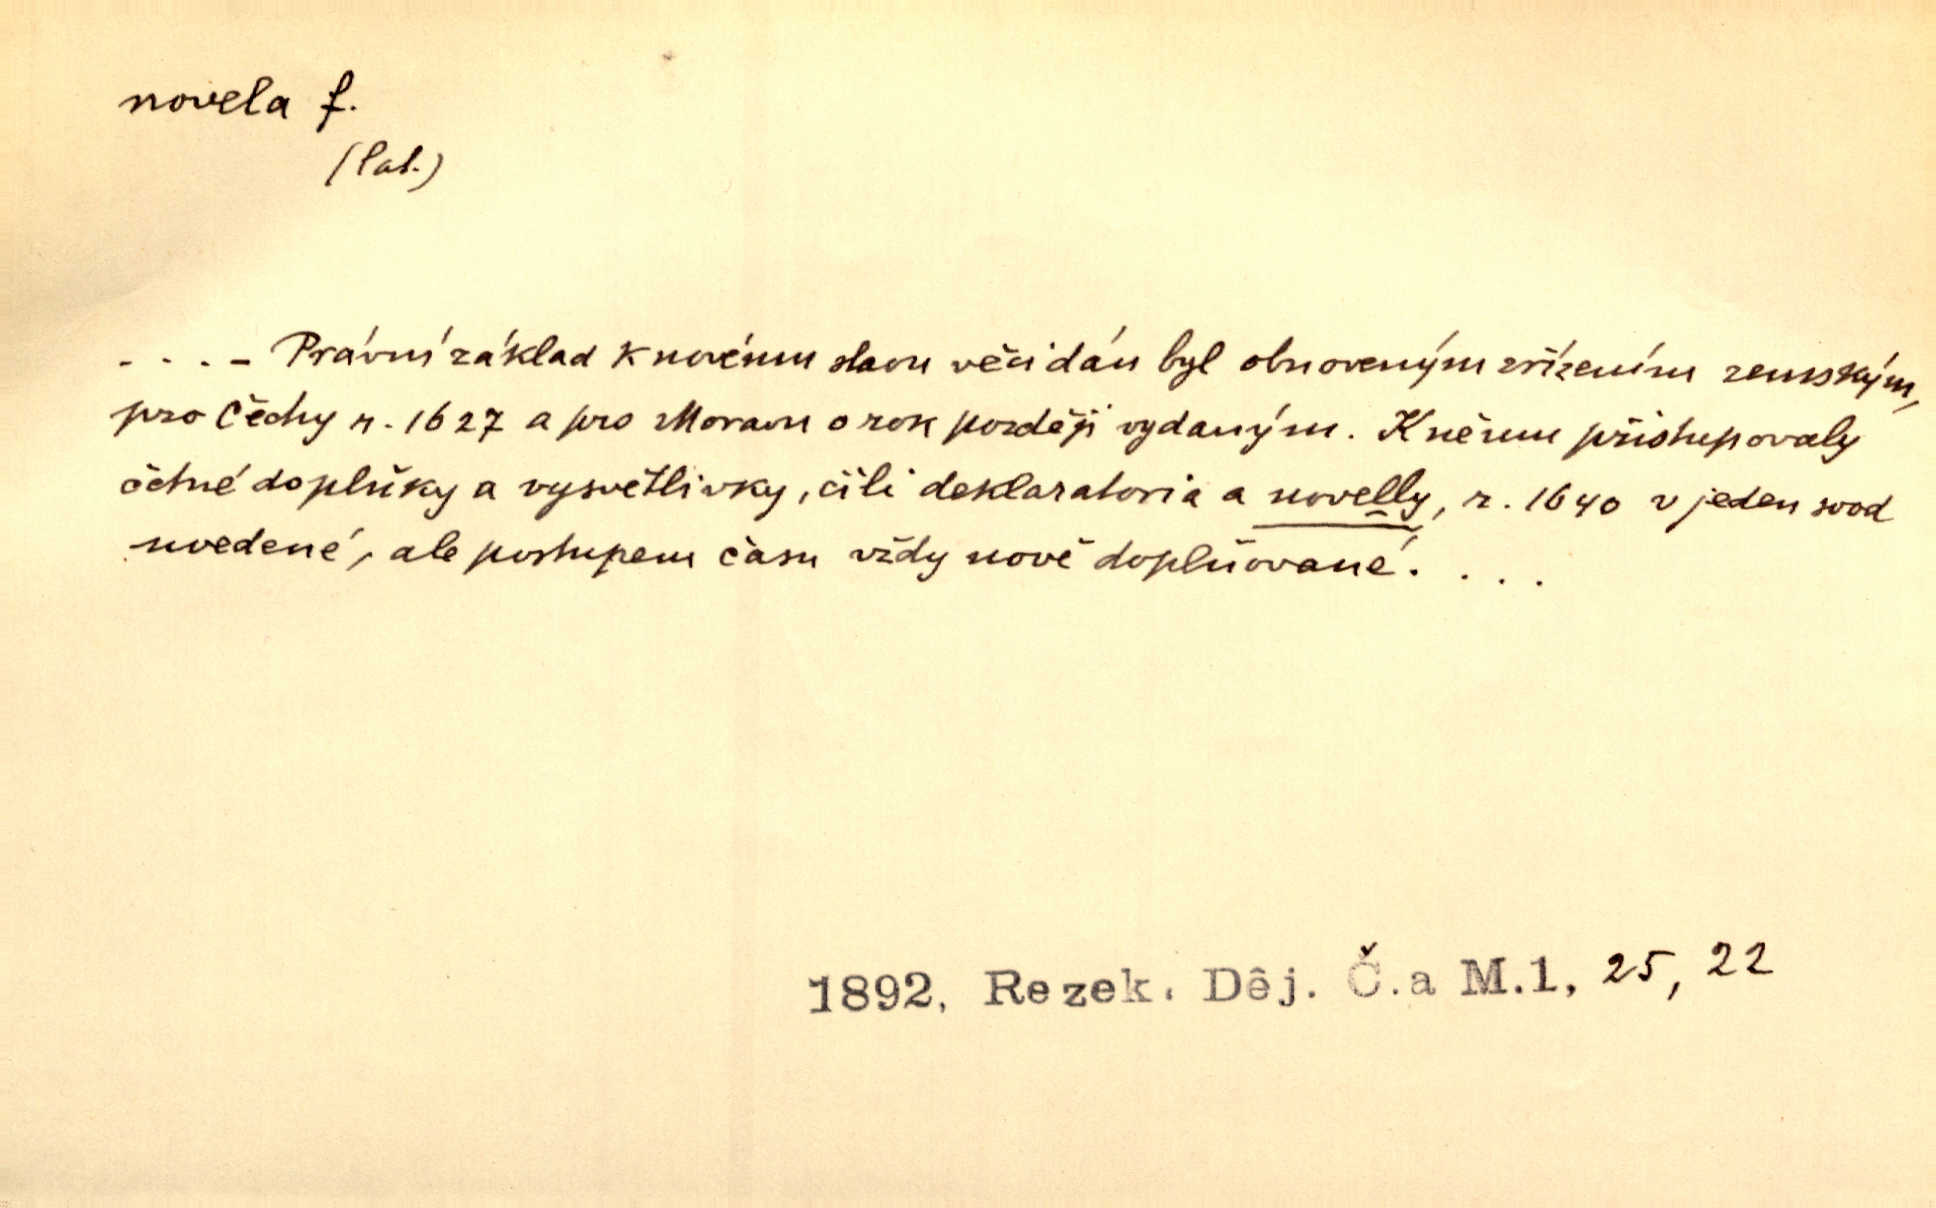 novela f.
(lat.)
. . . – Právní základ k novému stavu věci dán byl obnoveným zřízením zemským,
pro Čechy r. 1627 a pro Moravu o rok později vydaným. K němu přistupovaly
četné doplňky a vysvětlivky, čili deklaratoria a novelly, r. 1640 v jeden svod
uvedené, ale postupem času vždy nově doplňované. . . .
1892, Rezek, Děj. Č. a M. 1, 25, 22